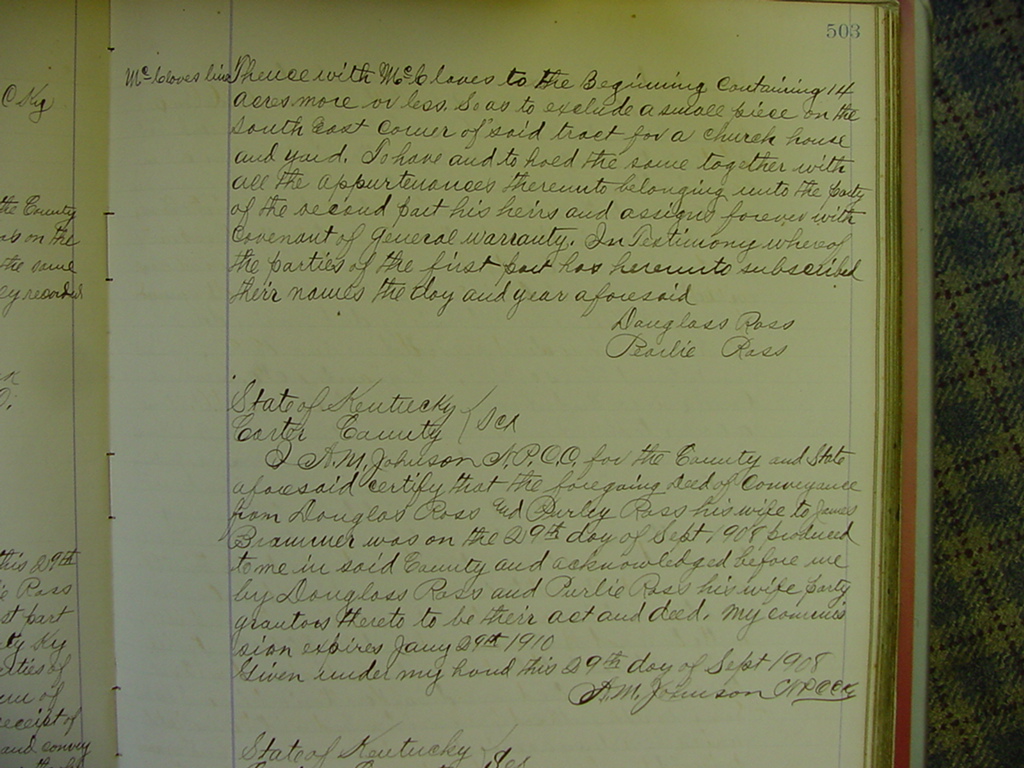 503
McCloves line Thence with McCloves to the Beginning Containing 14
acres more or less. So as to exclude a small piece on the
South East Corner of said tract for a church house
and yard. To have and to hold the same together with
all the appurtenances thereunto belonging unto the party
of the second part his heirs and assigns forever with
Covenant of General Warranty. In Testimony whereof
the parties of the first part has hereunto subscribed
their names the day and year aforesaid
Douglass Ross
Pearlie Ross
State of Kentucky
Carter County / Sct
I A.M. Johnson N.P.C.C. for the County and State
aforesaid certify that the foregoing Deed of Conveyance
from Douglas Ross and Purley Ross his wife to James
Brammer was on the 29th day of Sept 1908 produced
to me in said County and acknowledged before me
by Douglass Ross and Purlie Ross his wife party
grantors thereto to be their act and deed. My commis
sion expires Jany 29th 1910
Given under my hand this 29th day of Sept 1908
A.M. Johnson N.P.C.C.
State of Kentucky
C Ky
the County
on the
the same
recorded
this 29th
Ross
st part
ty Ky
rties of
of
receipt of
and convey